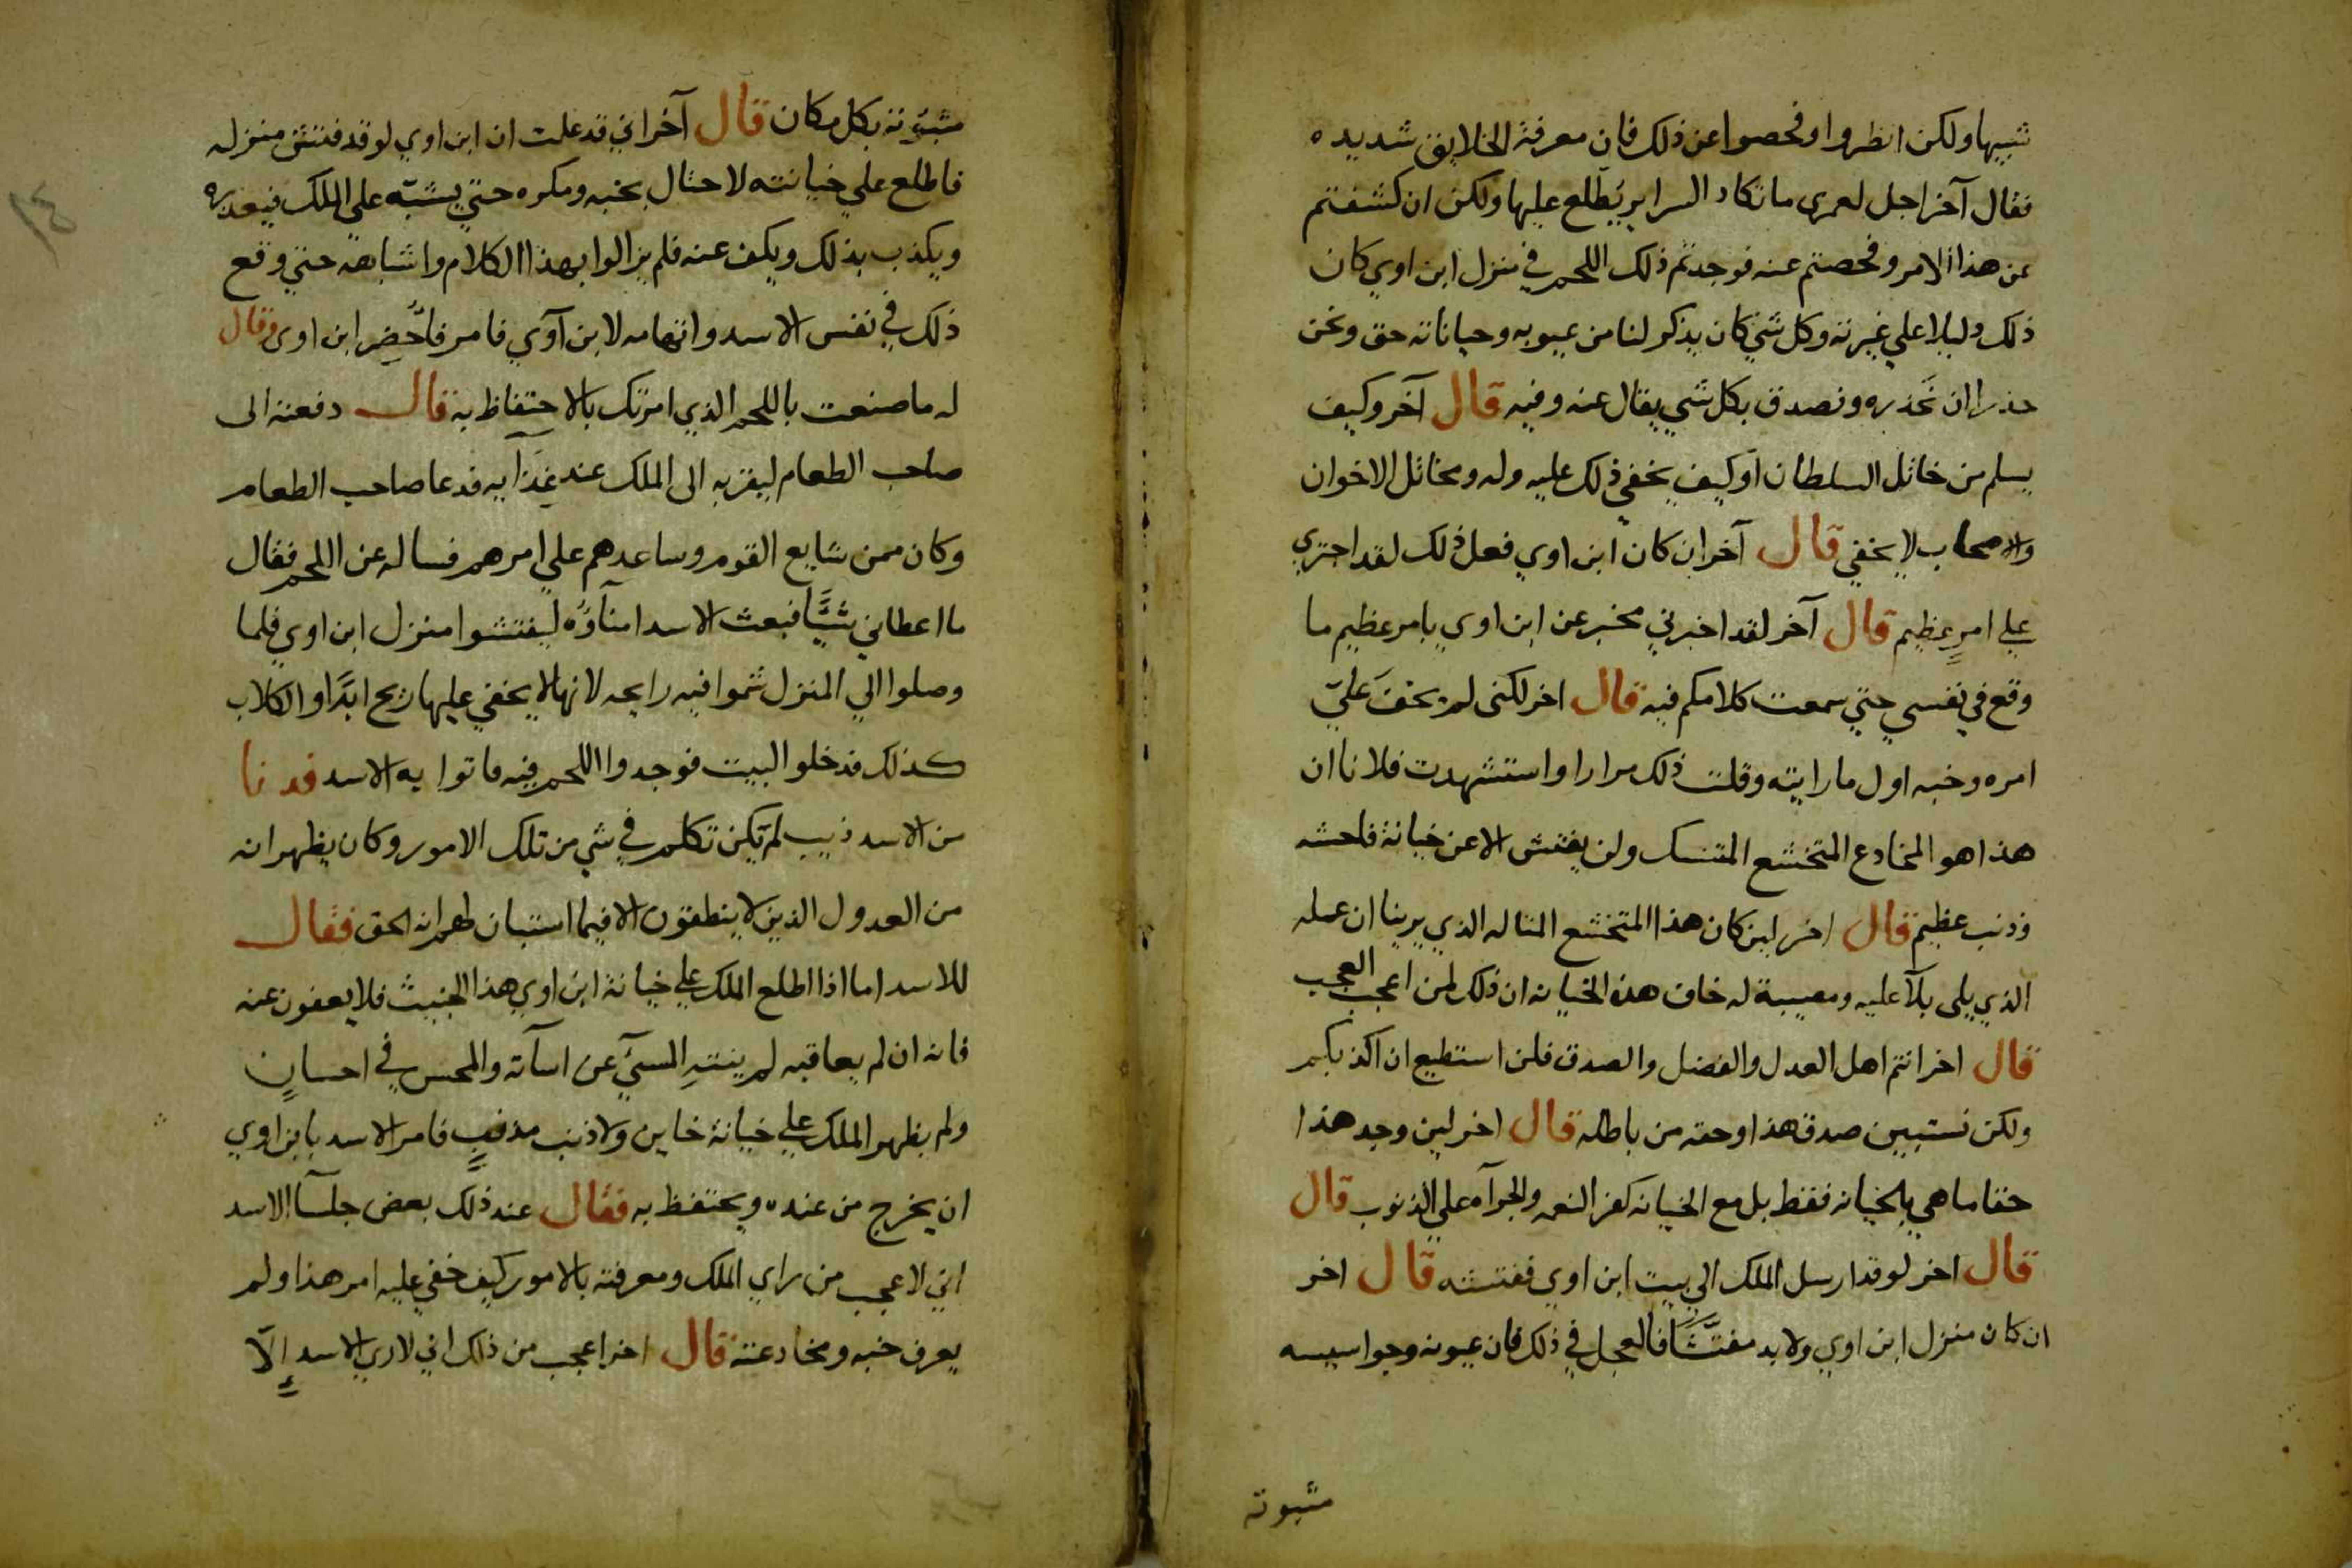 شبيها ولكن انظروا وافحصوا عن ذلك فان معرفة الخلايق شديده
فقال آخر اجل لعمري ما تكاد السراير يَطّلع عليها ولكن ان كشفتم
عن هذا الامر وفحصتم عنه فوجدتم ذلك اللحم في منزل ابن اوي كان
ذلك دليلا علي غيرته وكل شي كان يذكر لنا من عيوبه وخياناته حق ونحن
حذرا ان نَحذره ونصدق بكل شي يقال عنه وفيه قال آخر وكيف
يسلم من خاتل السلطان او كيف يخفي ذلك عليه وله ومخاتل الاخوان
والاصحاب لا يخفي قال آخر ان كان ابن اوي فعل ذلك لقد اجتري
علي امرٍ عظيم قال آخر لقد اخبرني مخبر عن ابن اوي بامر عظيم ما
وقع في نفسي حتي سمعت كلامكم فيه قال اخر لكني لم يخفَ عليّ
امره وخبه اول ما رايته وقلت ذلك مرارا واستشهدت فلانا ان
هذا هو المخادع المتخشع المتنسك ولن يفتش الا عن خيانة فاحشه
وذنب عظيم قال اخر لين كان هذا المتخشع المتاله الذي يرينا ان عمله
الذي يلي بلآ عليه ومصيبة له خان هذه الخيانه ان ذلك لمن اعجب العجب
قال اخر انتم اهل العدل والفضل والصدق فلن استطيع ان اكذبكم
ولكن نستبين صدق هذا وحقه من باطله قال اخر لين وجد هذا
حقا ما هي بالخيانه فقط بل مع الخيانه كفر النعمه والجرآه علي الذنوب قال
قال اخر لو قد ارسل الملك الي بيت ابن اوي ففتشه قال اخر
ان كان منزل ابن اوي ولا بد مفتَّشًا فالعجل في ذلك فان عيونه وجواسيسه
مثبوته
مثبوته بكل مكان قال آخر اني قد علمت ان ابن اوي لو قد فتش منزله
فاطلع علي خيانته لاحتال بخبه ومكره حتي يشبّه علي الملك فيعذره
ويكذب بذلك ويكف عنه فلم يزالوا بهذا الكلام واشباهه حتي وقع
ذلك في نفس الاسد واتهامه لابن آوي فامر فاُحضِر ابن اوى وقال
له ما صنعت باللحم الذي امرتك بالاحتفاظ به قال دفعته الى
صاحب الطعام ليقربه الى الملك عند غدآيه فدعا صاحب الطعام
وكان ممن شايع القوم وساعدهم علي امرهم فساله عن اللحم فقال
ما اعطاني شيًّا فبعث الاسد امنآوُه ليفتشوا منزل ابن اوي فلما
وصلوا الي المنزل شموا فيه رايحه لانها لا يخفي عليها ريح ابدًا والكلاب
كذلك فدخلو البيت فوجدوا اللحم فيه فاتوا به الاسد فدنا
من الاسد ذيب لم يكن تكلم في شي من تلك الامور وكان يظهر انه
من العدول الذين لا ينطقون الا فيما استبان لهم انه الحق فقال
للاسد اما اذا اطلع الملك علي خيانة ابن اوي هذا الخبيث فلا يعفون عنه
فانه ان لم يعاقبه لم ينتهِ المسيّ عن اسآته والمحسن في احسانٍ
ولم يظهر الملك علي خيانة خاين ولا ذنب مذنبٍ فامر الاسد بابن اوي
ان يخرج من عنده ويحتفظ به فقال عند ذلك بعض جلسآ الاسد
اني لاعجب من راي الملك ومعرفته بالامور كيف خفي عليه امر هذا ولم
يعرف خبه ومخادعته قال اخر اعجب من ذلك اني لا اري الاسد إلّا